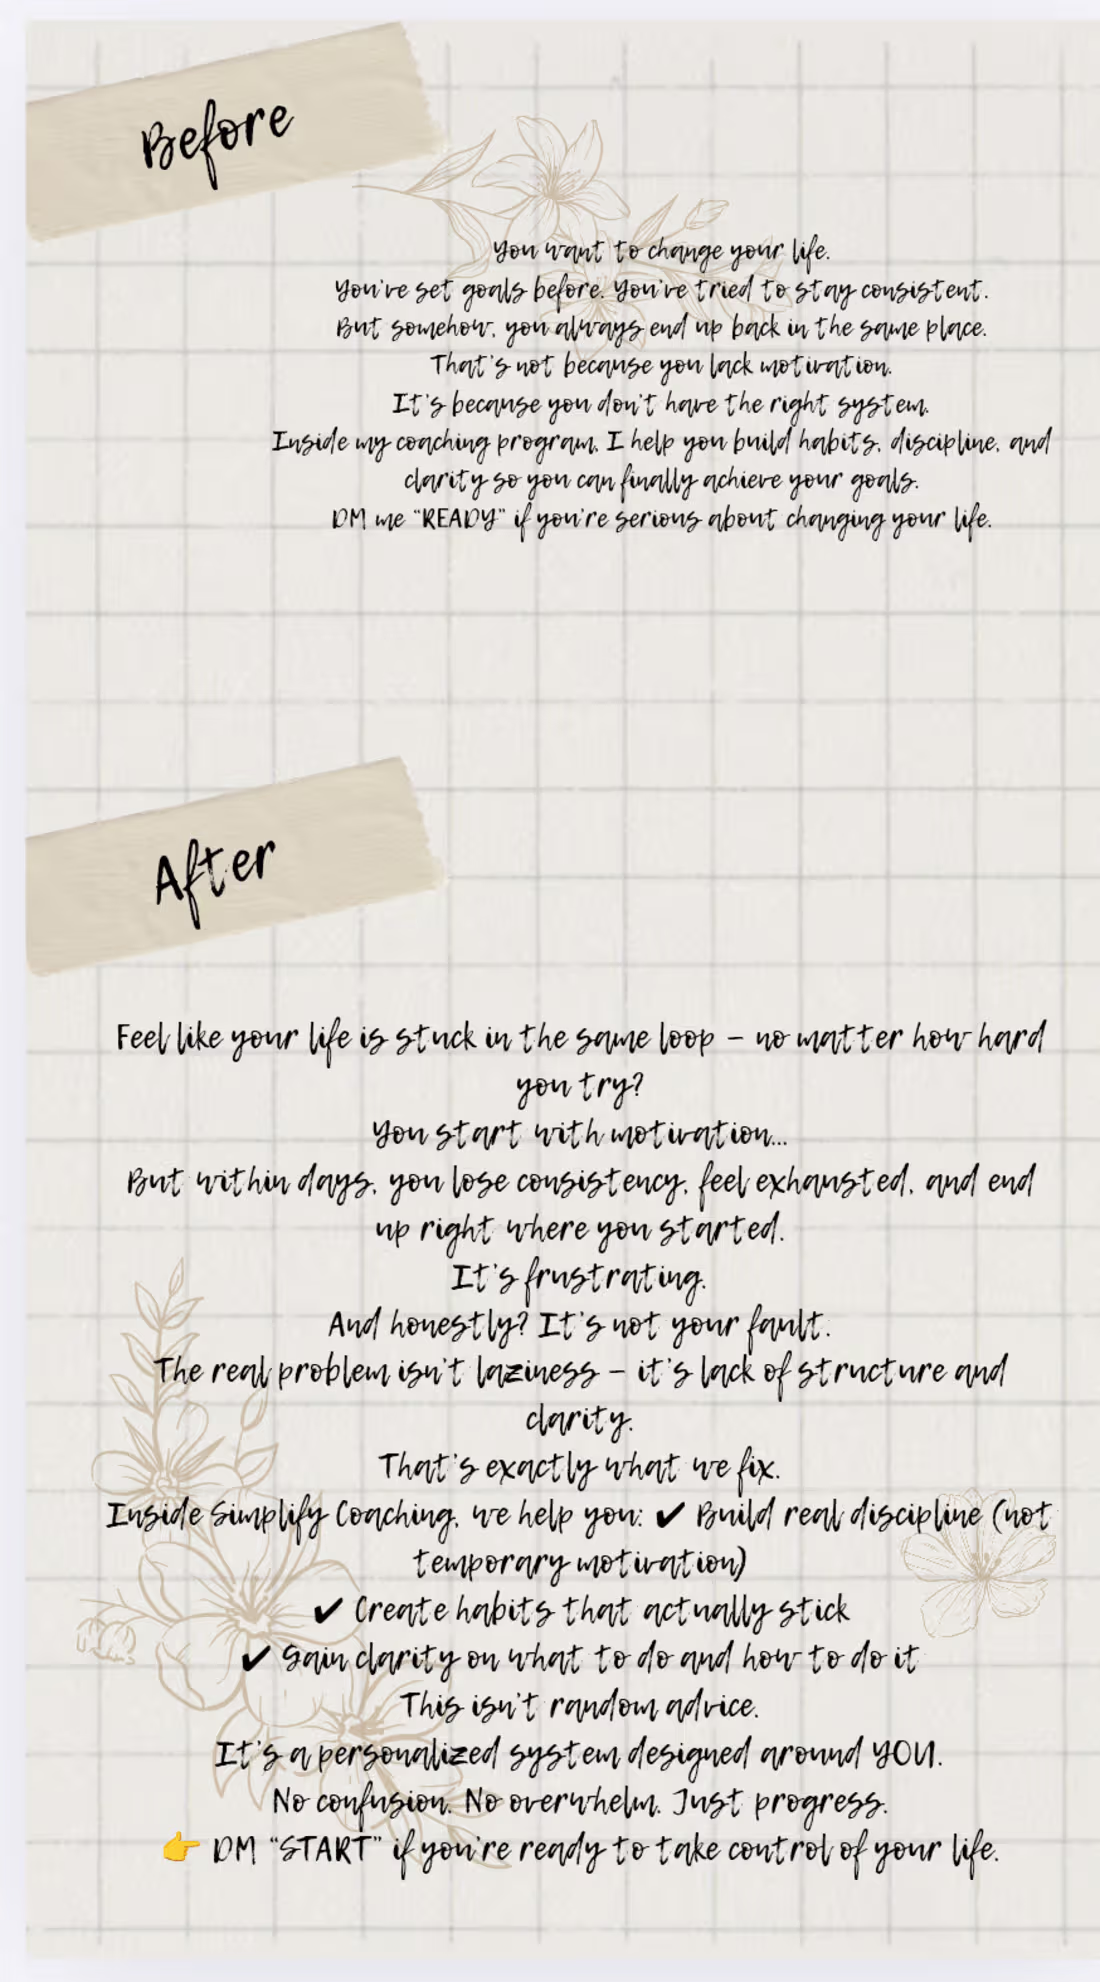 Before
You want to change your life.
You've set goals before. You've tried to stay consistent.
But somehow, you always end up back in the same place.
That's not because you lack motivation.
It's because you don't have the right system.
Inside my coaching program, I help you build habits, discipline, and
clarity so you can finally achieve your goals.
DM me "READY" if you're serious about changing your life.
After
Feel like your life is stuck in the same loop – no matter how hard
you try?
You start with motivation...
But within days, you lose consistency, feel exhausted, and end
up right where you started.
It's frustrating.
And honestly? It's not your fault.
The real problem isn't laziness – it's lack of structure and
clarity.
That's exactly what we fix.
Inside Simplify Coaching, we help you: ✔ Build real discipline (not
temporary motivation)
✔ Create habits that actually stick
✔ Gain clarity on what to do and how to do it
This isn't random advice.
It's a personalized system designed around YOU.
No confusion. No overwhelm. Just progress.
👉 DM "START" if you're ready to take control of your life.